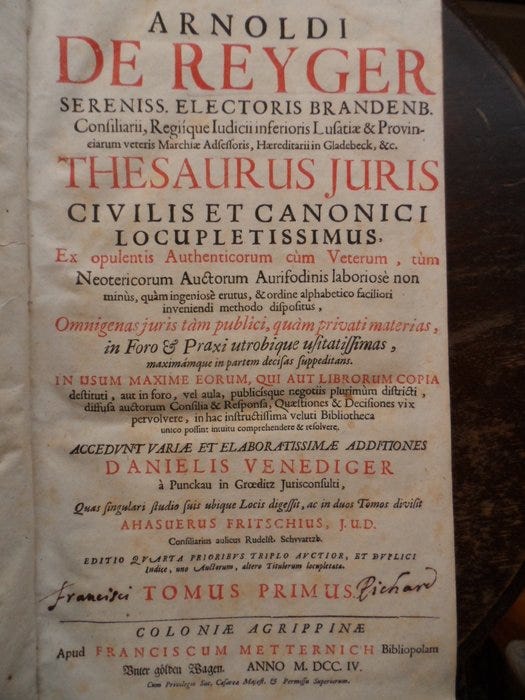 ARNOLDI
DE REYGER
SERENISS. ELECTORIS BRANDENB.
Consiliarii, Regiique Iudicii inferioris Lusatiæ & Provin-
ciarum veteris Marchiæ Adsessoris, Hæreditarii in Gladebeck, &c.
THESAURUS JURIS
CIVILIS ET CANONICI
LOCUPLETISSIMUS,
Ex opulentis Authenticorum cùm Veterum, tùm
Neotericorum Auctorum Aurifodinis laboriosè non
minùs, quàm ingeniosè erutus, & ordine alphabetico faciliori
inveniendi methodo dispositus,
Omnigenas juris tàm publici, quàm privati materias,
in Foro & Praxi utrobique usitatissimas,
maximámque in partem decisas suppeditans.
IN USUM MAXIME EORUM, QUI AUT LIBRORUM COPIA
destituti, aut in foro, vel aula, publicisque negotiis plurimùm districti,
diffusa auctorum Consilia & Responsa, Quæstiones & Decisiones vix
pervolvere, in hac instructissima veluti Bibliotheca
unico possint intuitu comprehendere & resolvere.
ACCEDVNT VARIÆ ET ELABORATISSIMÆ ADDITIONES
DANIELIS VENEDIGER
à Punckau in Grœditz Jurisconsulti,
Quas singulari studio suis ubique Locis digessit, ac in duos Tomos divisit
AHASUERUS FRITSCHIUS, J.U.D.
Consiliarius aulicus Rudelst. Schvvartzb.
EDITIO QVARTA PRIORIBVS TRIPLO AVCTIOR, ET DVPLICI
Indice, uno Auctorum, altero Titulorum locupletata.
Francisci TOMUS PRIMUS. Pichard
COLONIÆ AGRIPPINÆ
Apud FRANCISCUM METTERNICH Bibliopolam
Vnter gölden Wagen. ANNO M. DCC. IV.
Cum Privilegio Sac. Cæsarea Majest. & Permissu Superiorum.